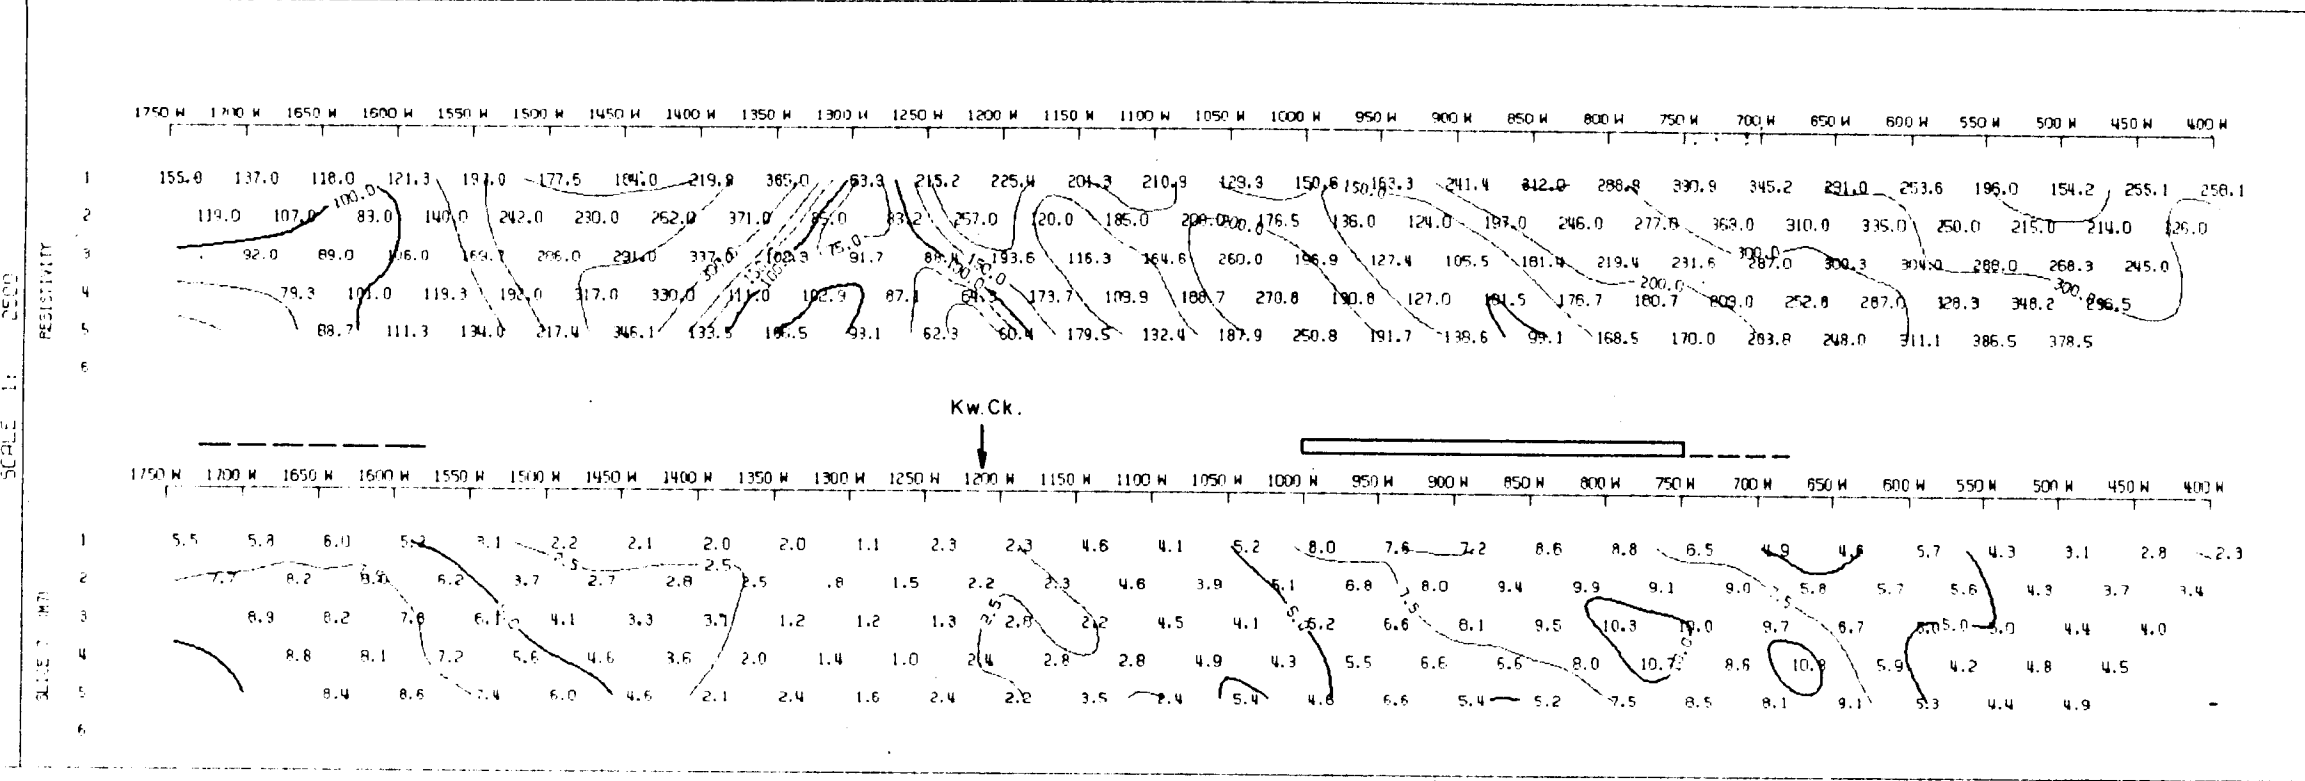 1750 W 1650 W 1600 W 1550 W 1500 W 1450 W 1400 W 1350 W 1300 W 1250 W 1200 W 1150 W 1100 W 1050 W 1000 W 950 W 900 W 850 W 800 W 750 W 700 W 650 W 600 W 550 W 500 W 450 W 400 W
1 155.0 137.0 118.0 121.3 177.5 184.0 219.8 365.0 63.3 215.2 225.4 201.3 210.9 129.3 150.6 150.0 163.3 241.4 312.0 288.8 330.9 345.2 291.0 253.6 196.0 154.2 255.1 258.1
100.0
2 119.0 107.0 83.0 140.0 242.0 230.0 262.0 371.0 85.0 83.2 257.0 120.0 185.0 200.0 176.5 136.0 124.0 197.0 246.0 277.0 369.0 310.0 335.0 250.0 215.0 214.0
75.0
3 92.0 89.0 106.0 169.7 206.0 291.0 337.0 102.3 91.7 88.4 193.6 116.3 164.6 260.0 196.9 127.4 105.5 181.4 219.4 231.6 287.0 300.3 304.0 288.0 268.3 245.0
300.0 150.0 300.0
200.0 300.0
4 79.3 101.0 119.3 192.0 317.0 330.0 111.0 102.9 87.1 64.3 173.7 109.9 188.7 270.8 190.8 127.0 101.5 176.7 180.7 209.0 252.8 287.0 128.3 348.2 296.5
5 88.7 111.3 134.0 217.4 346.1 133.5 106.5 99.1 62.3 60.4 179.5 132.4 187.9 250.8 191.7 138.6 99.1 168.5 170.0 203.8 248.0 311.1 386.5 378.5
6
RESISTIVITY
SCALE 1: 2500
Kw.Ck.
1750 W 1700 W 1650 W 1600 W 1550 W 1500 W 1450 W 1400 W 1350 W 1300 W 1250 W 1200 W 1150 W 1100 W 1050 W 1000 W 950 W 900 W 850 W 800 W 750 W 700 W 650 W 600 W 550 W 500 W 450 W 400 W
1 5.5 5.8 6.0 5.2 3.1 2.2 2.1 2.0 2.0 1.1 2.3 2.3 4.6 4.1 5.2 8.0 7.6 7.2 8.6 8.8 6.5 4.9 4.6 5.7 4.3 3.1 2.8 2.3
2.5
2 7.7 8.2 6.2 3.7 2.7 2.8 2.5 .8 1.5 2.2 2.3 4.6 3.9 5.1 6.8 8.0 9.4 9.9 9.1 9.0 5.8 5.7 5.6 4.3 3.7 3.4
2.5 7.5
3 8.9 8.2 7.8 4.1 3.3 3.7 1.2 1.2 1.3 2.8 2.2 4.5 4.1 5.2 6.6 8.1 9.5 10.3 10.0 9.7 6.7 5.0 5.0 4.4 4.0
4 8.8 8.1 7.2 5.6 4.6 3.6 2.0 1.4 1.0 2.4 2.8 2.8 4.9 4.3 5.5 6.6 6.6 8.0 10.7 8.6 10.8 5.9 4.2 4.8 4.5
5 8.4 8.6 7.4 6.0 4.6 2.1 2.4 1.6 2.4 2.2 3.5 2.4 5.4 4.8 6.6 5.4 5.2 7.5 8.5 8.1 9.1 5.3 4.4 4.9
6